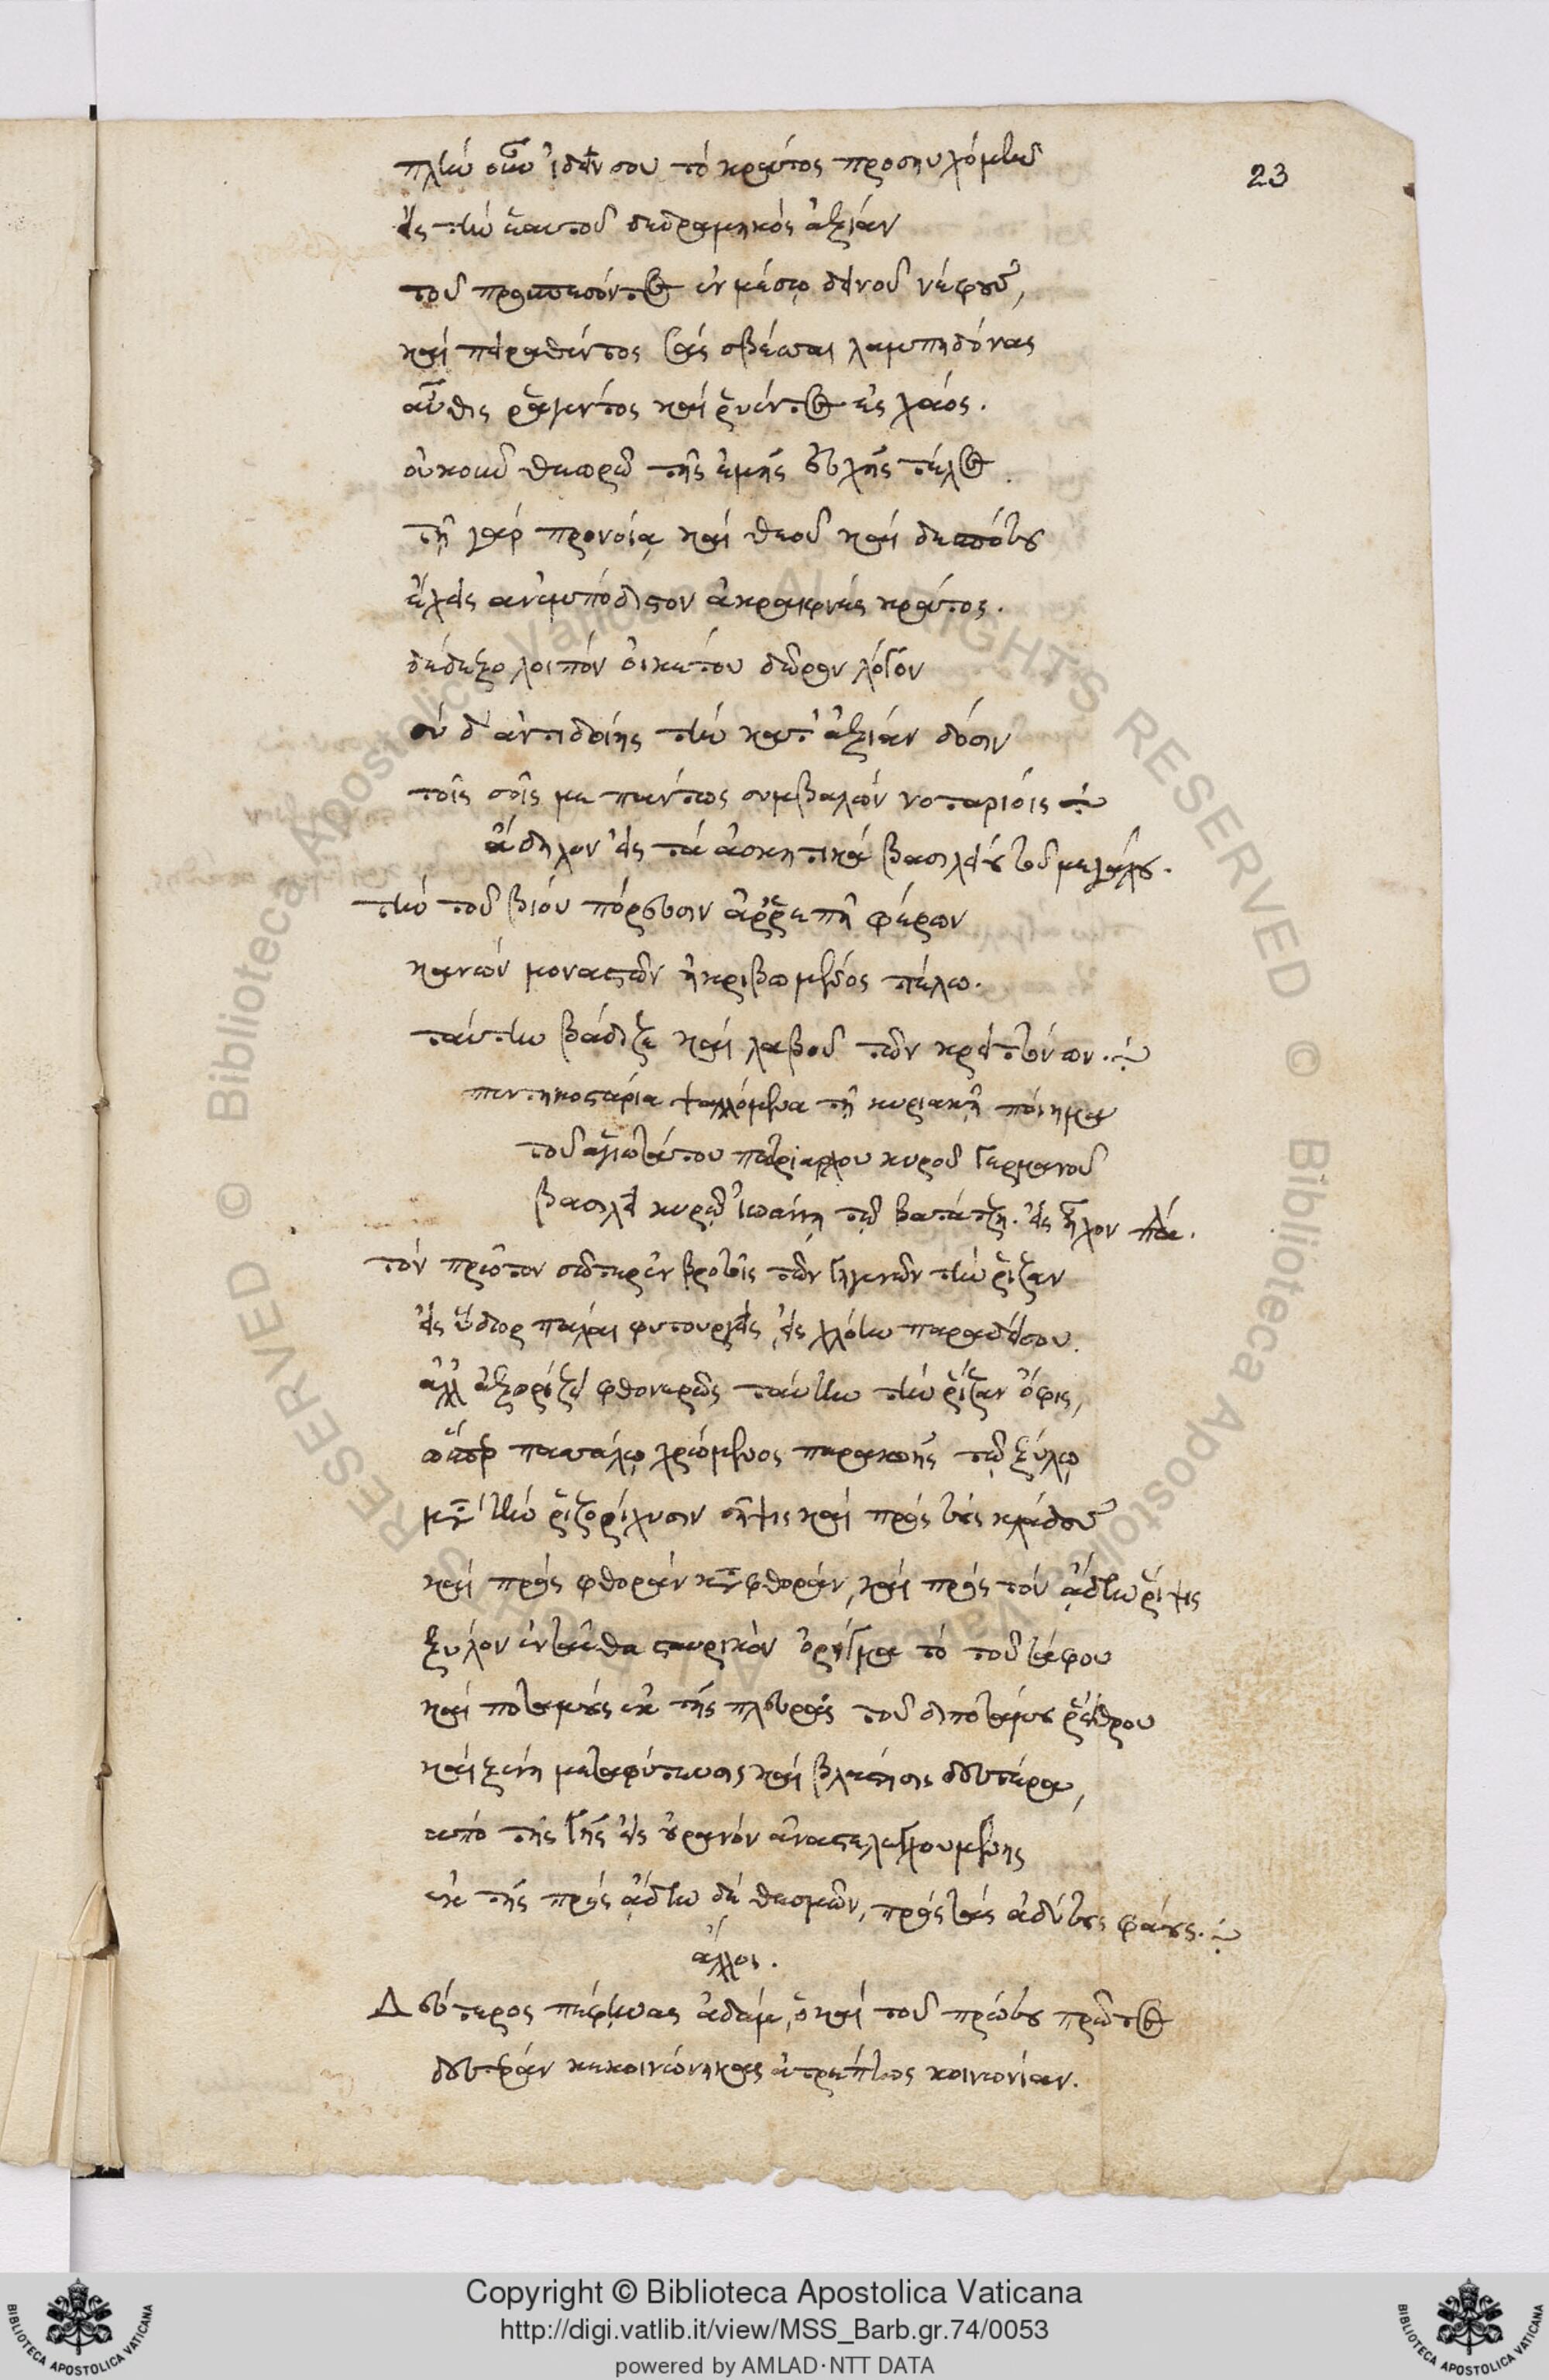 23
πλὴν οὖν ἰδεῖν σου τὸ κράτος προσηυχόμην
εἰς τὴν ἑαυτοῦ δεδραμηκὸς ἀξίαν
τοῦ προσπεσόντος ἐν μέσῳ δεινοῦ νέφους,
καὶ πειραθέντος τὰς σβέσαι λαμπηδόνας
αὖθις ῥαγέντος καὶ ῥυέντος εἰς χάος.
οὐκοῦν θεωρῶ τῆς ἐμῆς εὐχῆς τέλος.
τῇ γὰρ προνοίᾳ καὶ θεοῦ καὶ δεσπότου
ἔχεις ἀνεμπόδιστον ἀκραιφνὲς κράτος.
δέδεξο λοιπὸν οἰκέτου δῶρον λόγον
σὺ δ' ἀντιδοίης τὴν κατ' ἀξίαν δόσιν
τοῖς σοῖς με πάντως συμβαλὼν νοταρίοις
ἄδηλον εἰς τὰ ἀσκητικὰ βασιλείου τοῦ μεγάλου.
τὴν τοῦ βίου πόρευσιν ἀρρεπῆ φέρων
κανὼν μοναστῶν ἠκριβωμένος πέλω.
ταύτην βάδιζε καὶ λαβοῦ τῶν κρειττόνων.
πεντηκοστάρια ψαλλόμενα τῇ κυριακῇ ποίημα
τοῦ ἁγιωτάτου πατριάρχου κυροῦ Γερμανοῦ
βασιλεῖ κυρῷ Ἰωάννῃ τῷ βατάτζῃ. εἰς ἦχον
τὸν πρῶτον σῶτερ ἐν βροτοῖς τῶν γηγενῶν τὴν ῥίζαν
εἰς ὕδωρ πάλαι φυτουργεῖς, εἰς χλόην παραδείσου.
ἀλλ' ἐξορίζει φθονερῶς ταύτην τὴν ῥίζαν ὄφις,
ὥσπερ πασσάλῳ χρώμενος παρακοῆς τῷ ξύλῳ
μετὰ τὴν ῥιζορίχυσιν σῆψις καὶ πρὸς τοὺς κλάδους
καὶ πρὸς φθορὰν καταφθοράν, καὶ πρὸς τὸν ᾅδην ῥίψις
ξύλον ἐνταῦθα σταυρικὸν ὄρυγμα τὸ τοῦ τάφου
καὶ ποταμὸς ἐκ τῆς πλευρᾶς τοῦ σιποταμου ῥείθρου
καὶ ξένη μεταφύτευσις καὶ βλάστησις δευτέρα,
ἀπὸ τῆς γῆς εἰς οὐρανὸν ἀναστελεχουμένης
ἐκ τῆς πρὸς ᾅδην δὲ θεσμῶν, πρὸς τοὺς ἀδύτους φάους.
ἄλλοι.
Δεύτερος πέφηνας ἀδάμ, ὁ καὶ τοῦ πρώτου πρῶτος
δευτέραν κεκοινώνηκας ἀτρέπτως κοινωνίαν.
Copyright © Biblioteca Apostolica Vaticana
http://digi.vatlib.it/view/MSS_Barb.gr.74/0053
powered by AMLAD·NTT DATA